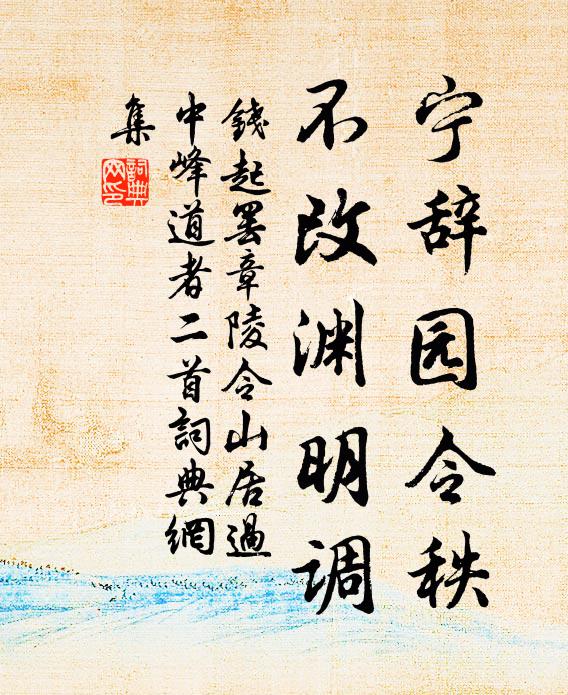 宁辞园令秩
不改渊明调
錢起罢章陵令山居過
中峰道者二首詞典網
集
詞典
网印